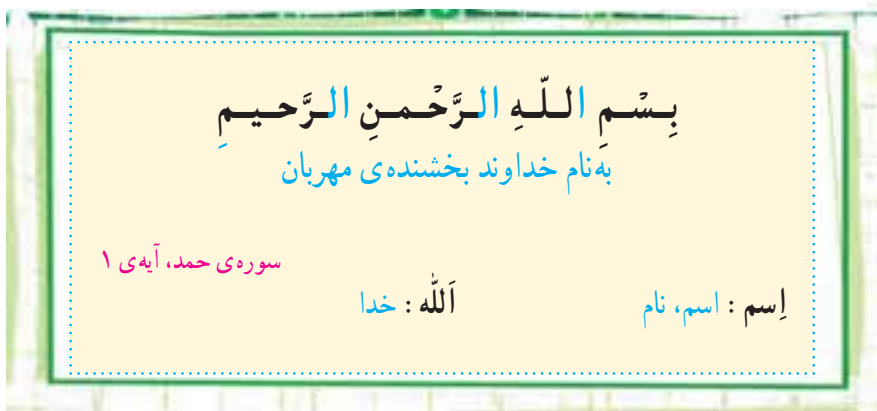 بِـسْـمِ الـلّـهِ الـرَّحْـمـنِ الـرَّحـيـمِ
به‌نام خداوند بخشنده‌ی مهربان
سوره‌ی حمد، آیه‌ی ۱
اِسم : اسم، نام
اَللّٰه : خدا